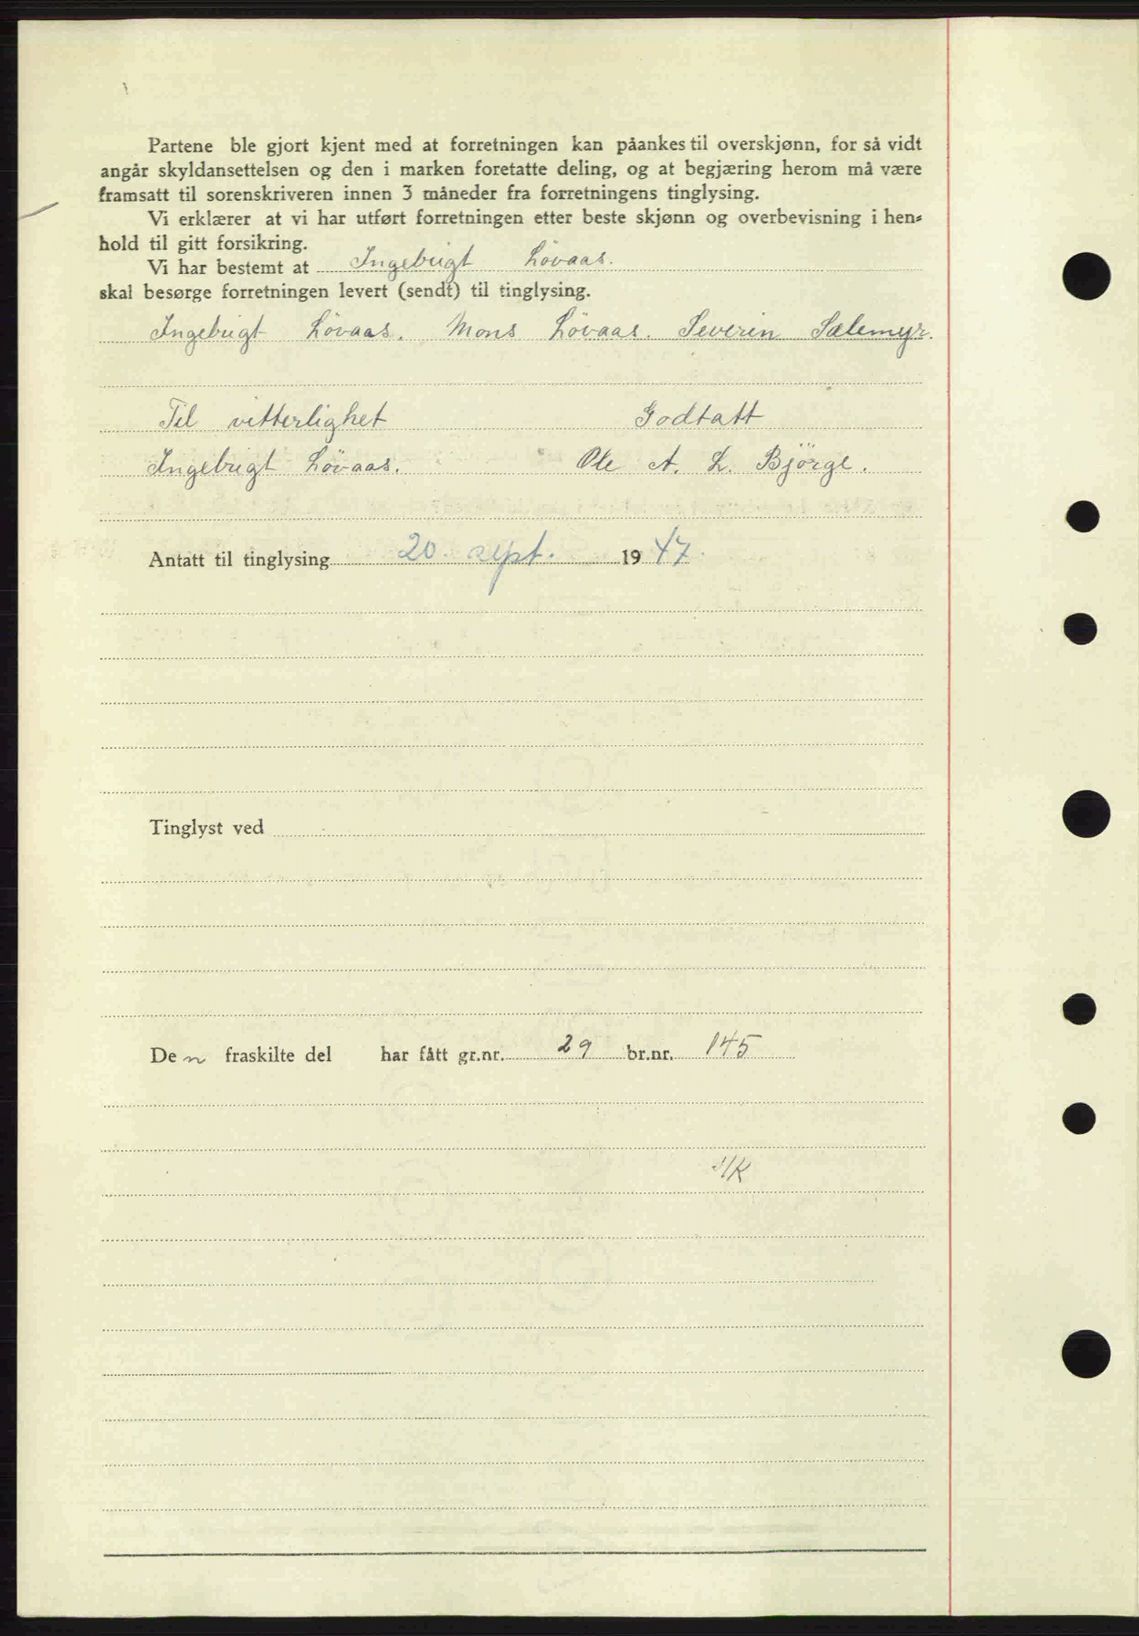 Partene ble gjort kjent med at forretningen kan påankes til overskjønn, for så vidt
angår skyldansettelsen og den i marken foretatte deling, og at begjæring herom må være
framsatt til sorenskriveren innen 3 måneder fra forretningens tinglysing.
Vi erklærer at vi har utført forretningen etter beste skjønn og overbevisning i hen-
hold til gitt forsikring.
Vi har bestemt at Ingebrigt Lövaas.
skal besørge forretningen levert (sendt) til tinglysing.
Ingebrigt Lövaas. Mons Lövaas. Severin Sælemyr.
Til vitterlighet Godtatt
Ingebrigt Lövaas. Ole A. L. Björge.
Antatt til tinglysing 20. sept. 1947.
Tinglyst ved
Den fraskilte del har fått gr.nr. 29 br.nr. 145